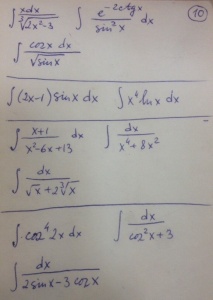 ∫ xdx / ∛(2x²-3)   ∫ e^(-2ctgx) / sin²x dx   10
∫ cosx dx / √sinx
∫ (2x-1) sinx dx   ∫ x⁴ lnx dx
∫ (x+1) / (x²-6x+13) dx   ∫ dx / (x⁴+8x²)
∫ dx / (√x + 2∛x)
∫ cos⁴2x dx   ∫ dx / (cos²x+3)
∫ dx / (2sinx-3cosx)